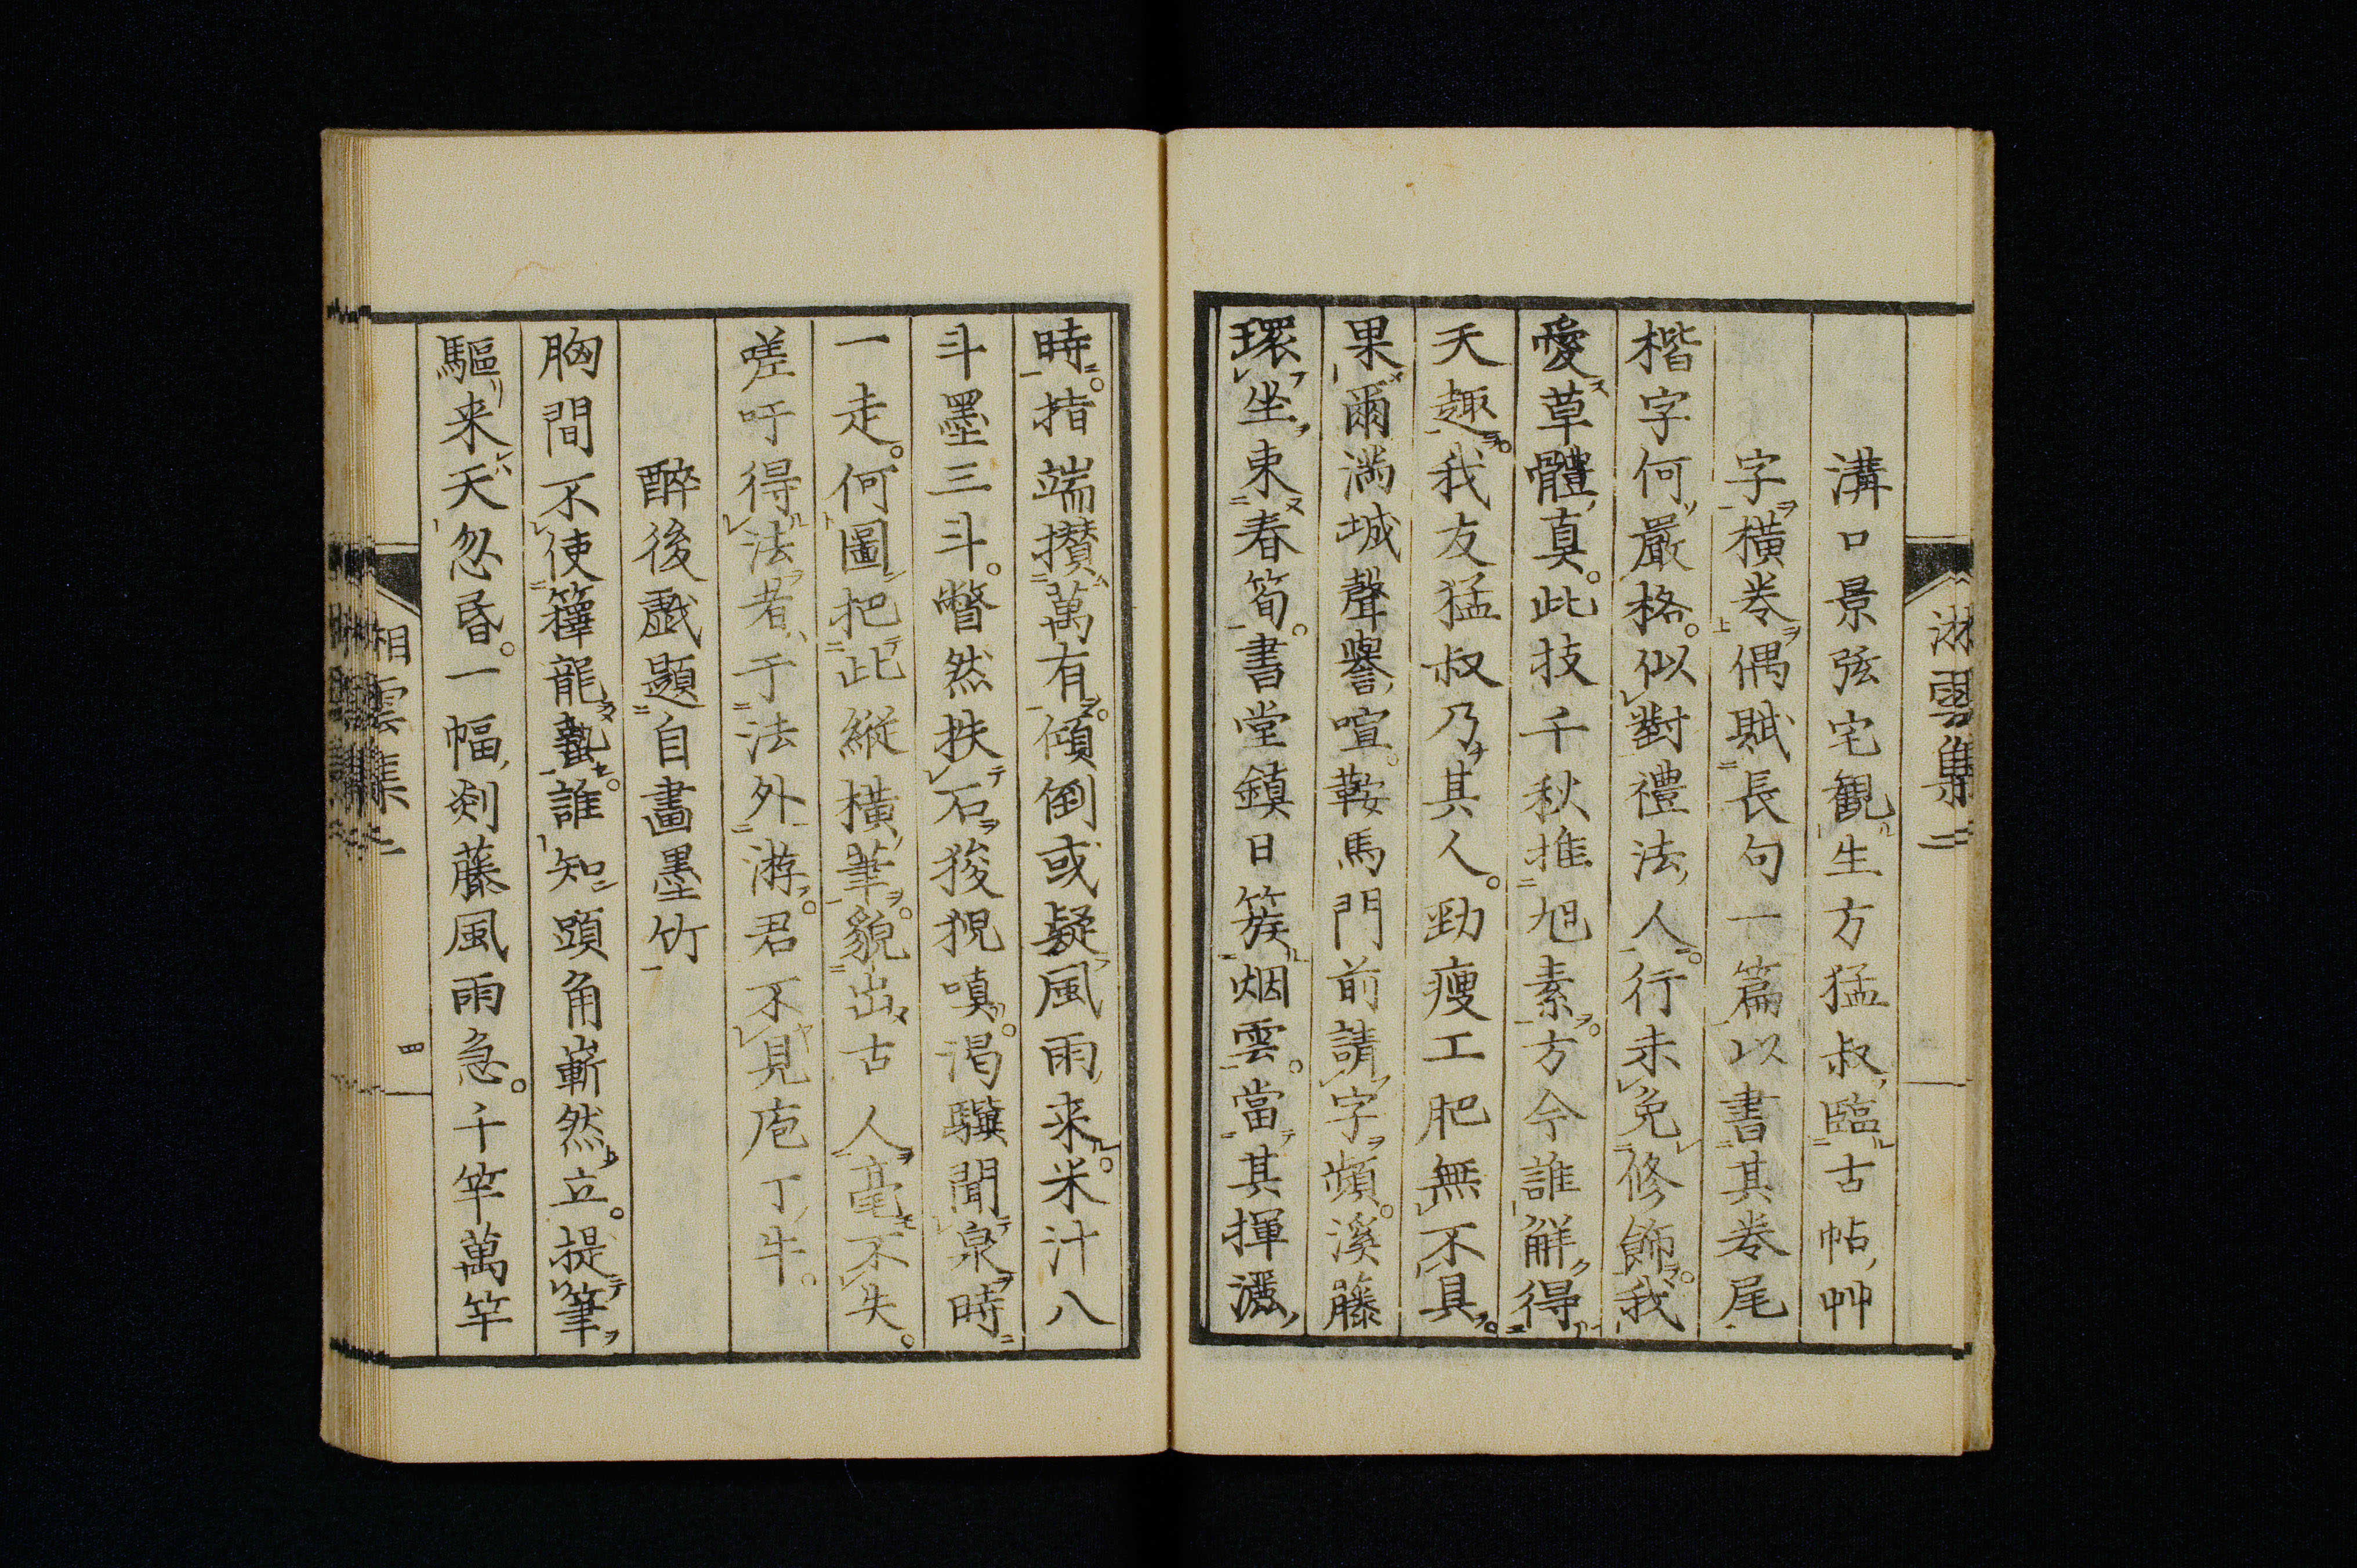 溝口景弦宅觀生方猛叔臨古帖艸
字橫卷偶賦長句一篇以書其卷尾
楷字何嚴格似對禮法人行未免修飾我
愛草體真此技千秋推旭素方今誰解得
天趣我友猛叔乃其人勁瘦工肥無不具
果爾滿城聲譽喧鞍馬門前請字頻溪藤
環坐束春筍書堂鎮日簇烟雲當其揮灑
時指端攢萬有傾倒或疑風雨来米汁八
斗墨三斗瞥然抉石狻猊嗔渴驥聞泉時
一走何圖把此縱橫筆貌出古人毫不失
嗟吁得法者于法外游君不見庖丁牛
醉後戲題自畫墨竹
胸間不使籜龍蟄誰知頭角嶄然立提筆
驅来天忽昏一幅剡藤風雨急千竿萬竿
湘雲集二
四